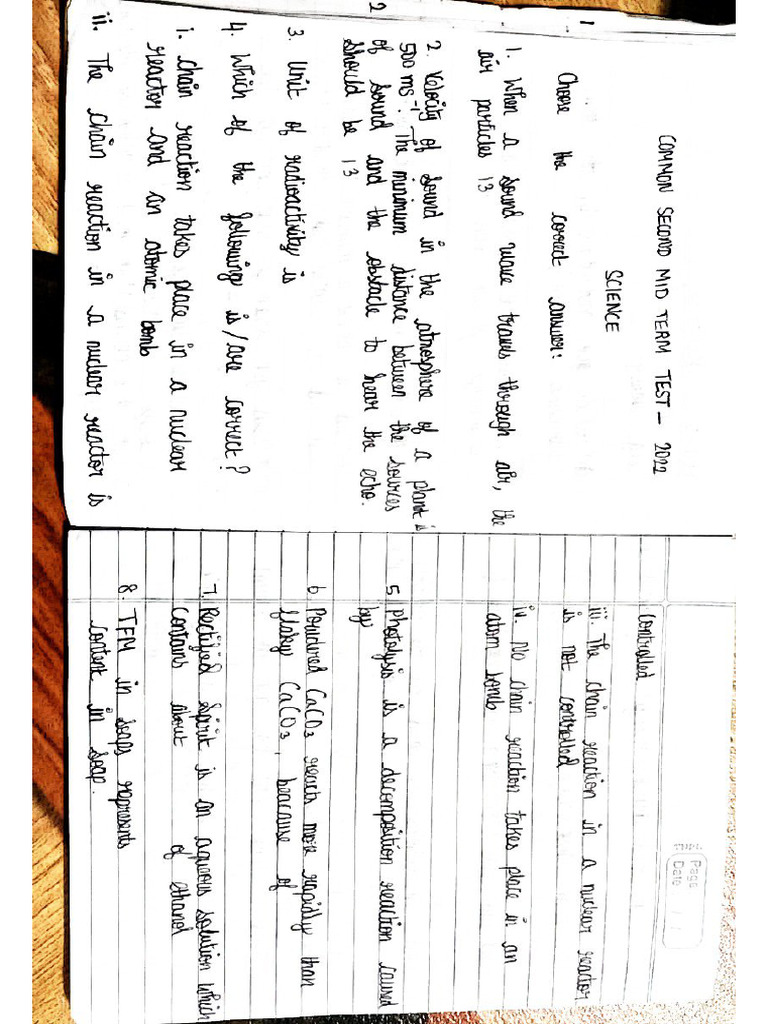 1
COMMON SECOND MID TERM TEST - 2022
SCIENCE
Choose the correct answer:
1. When a sound wave travels through air, the
air particles 13
2. Velocity of sound in the atmosphere of a planet is
500 ms⁻¹. The minimum distance between the sources
of sound and the obstacle to hear the echo.
should be 13
2
3. Unit of radioactivity is
4. Which of the following is/are correct?
i. chain reaction takes place in a nuclear
reactor and an atomic bomb
ii. The chain reaction in a nuclear reactor is
Page
Date
controlled
iii. The chain reaction in a nuclear reactor
is not controlled
iv. No chain reaction takes place in an
atom bomb
5. Photolysis is a decomposition reaction caused
by
6. Powdered CaCO₃ reacts more rapidly than
flaky CaCO₃, beacause of
7. Rectified spirit is an aqueous solution which
contains about of ethanol
8. TFM in soaps represents
content in soap.